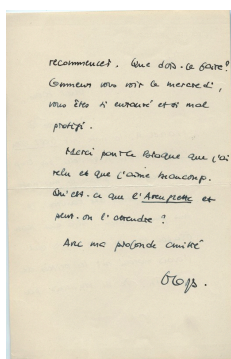 recommencer. Que dois-je faire?
Comment vous voir le mercredi,
vous êtes si entouré et si mal
protégé.
Merci pour le Braque que j'ai
relu et que j'aime beaucoup.
Qu'est-ce que l'et
peut-on l'attendre?
Avec ma profonde amitié